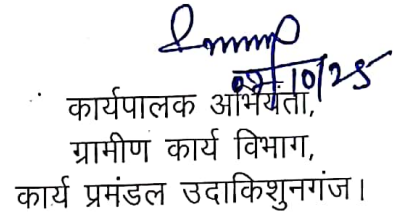 09/10/25
कार्यपालक अभियंता,
ग्रामीण कार्य विभाग,
कार्य प्रमंडल उदाकिशुनगंज।